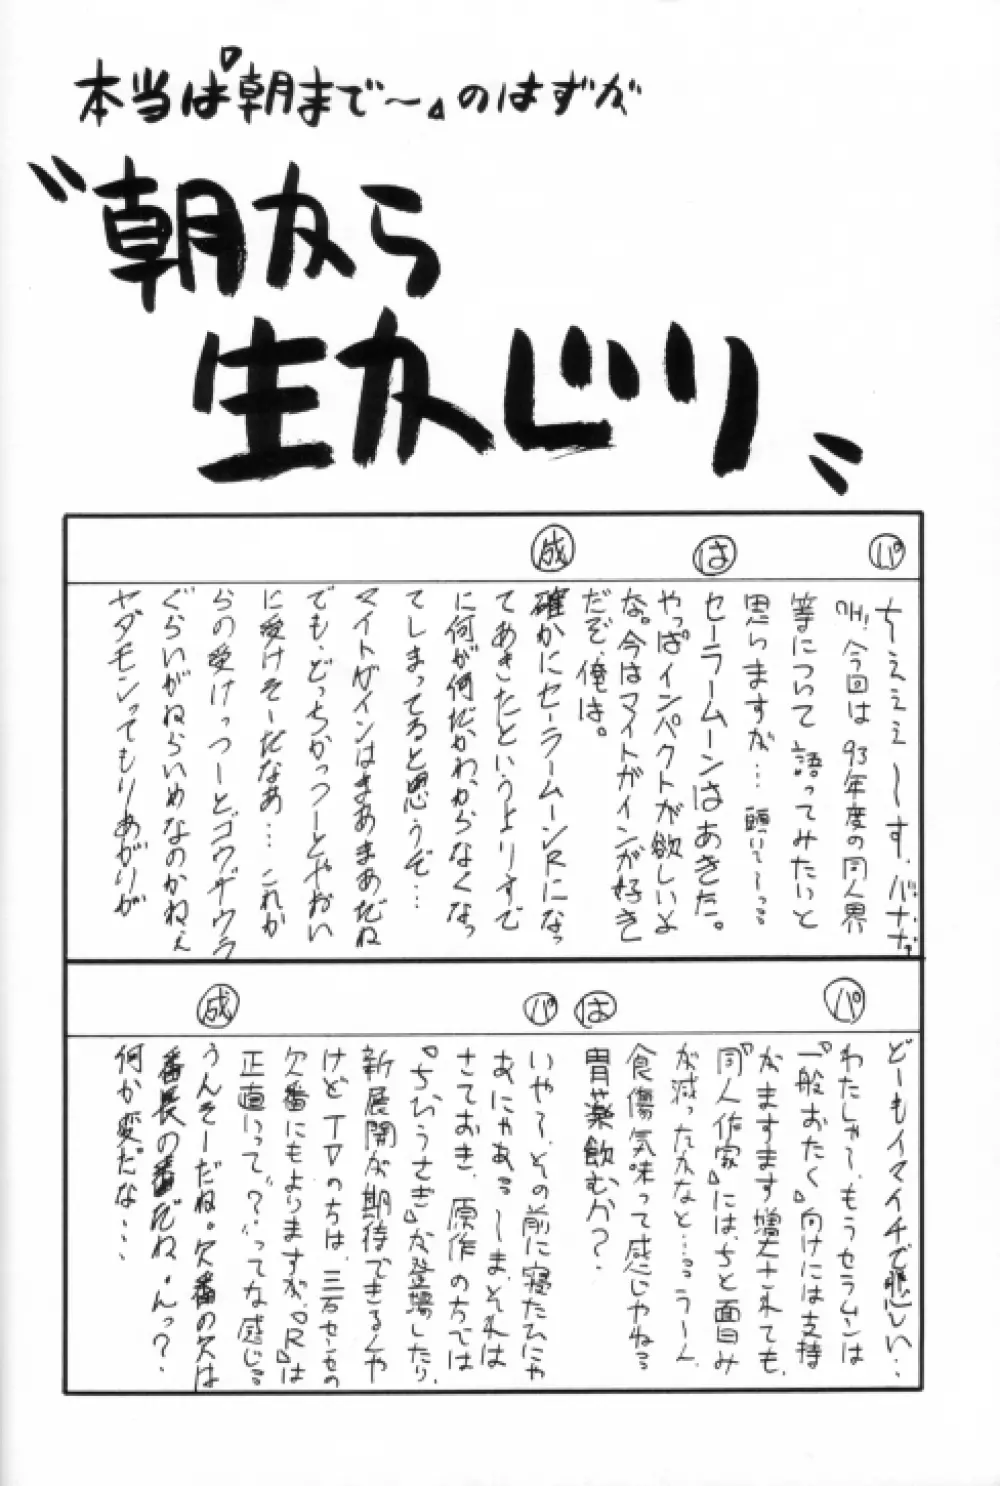 本当は『朝まで〜』のはずが
〝朝から
生かじり〟
パ
ちーえええ〜す、バナナ
OH! 今回は93年度の同人界
等について語ってみたいと
思いますが…
は
セーラームーンはあきた。
やっぱインパクトが欲しいよ
な。今はマイトガインが好き
だぞ、俺は。
成
確かにセーラームーンRになっ
てあきたというよりすで
に何が何だかわからなくなっ
てしまってると思うぞ…
マイトガインはまあまあだね
でも、どっちかっつーとやおい
に受けそーだなあ…これか
らの受けっつーとゴウザウラ
ぐらいがねらいめなのかねぇ
ヤダモンってもりあがりが
どーもイマイチで悲しい…
パ
わたしゃ〜、もうセラムンは
『一般おたく』向けには支持
がますます増大されても、
『同人作家』には、ちと面白み
が減ったかなと…うーん、
食傷気味って感じやね
は
胃薬飲むか？
パ
いやく、その前に寝たひにゃ
あにゃあるーしま、それは
さておき、原作の方では
『ちびうさぎ』が登場したり、
新展開が期待できるんや
けどTVのちは、三石センセの
欠番にもよりますが、『R』は
正直いって〝？〟ってな感じ
成
うんそーだね。欠番の欠は
番長の番だね。んっ？
何か変だな…